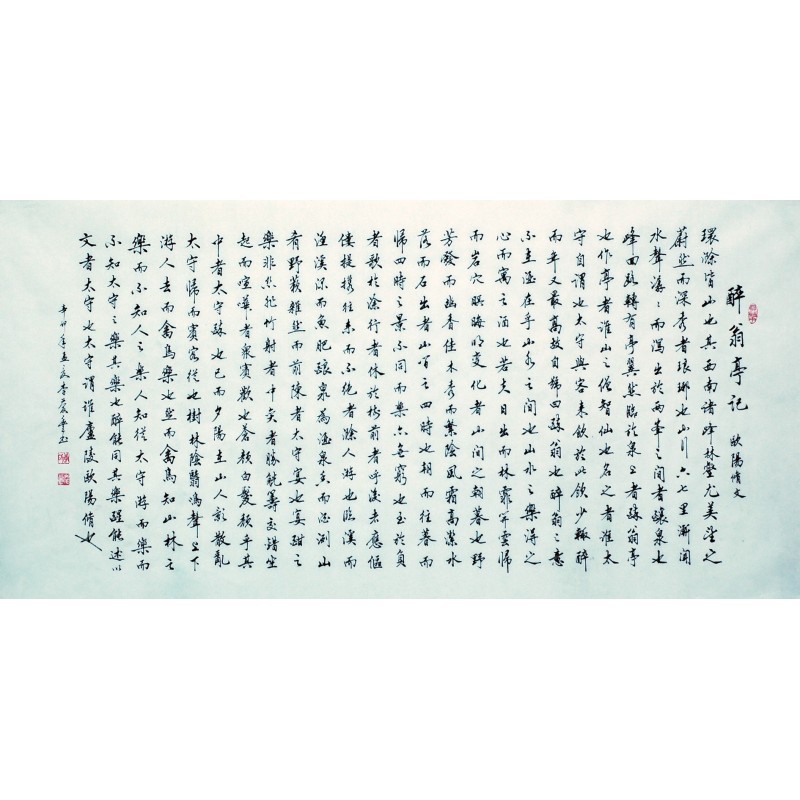 醉翁亭記 歐陽脩文
環滁皆山也其西南诸峰林壑尤美望之
蔚然而深秀者琅琊也山行六七里漸聞
水聲潺潺而瀉出於兩峰之間者釀泉也
峰回路轉有亭翼然臨於泉上者醉翁亭
也作亭者誰山之僧智仙也名之者誰太
守自謂也太守與客来飲於此飲少輒醉
而年又最高故自號曰醉翁也醉翁之意
不在酒在乎山水之間也山水之樂得之
心而寓之酒也若夫日出而林霏開雲歸
而岩穴暝晦明變化者山間之朝暮也野
芳發而幽香佳木秀而繁陰風霜高潔水
落而石出者山間之四時也朝而往暮而
歸四時之景不同而樂亦無窮也至於負
者歌於途行者休於樹前者呼後者應傴
僂提携往来而不絕者滁人游也臨溪而
漁溪深而魚肥釀泉為酒泉香而酒洌山
肴野蔌雜然而前陳者太守宴也宴酣之
樂非絲非竹射者中奕者勝觥籌交錯坐
起而喧嘩者衆賓歡也蒼顏白髮頹乎其
中者太守醉也已而夕陽在山人影散亂
太守歸而賓客從也樹林陰翳鳴聲上下
游人去而禽鳥樂也然而禽鳥知山林之
樂而不知人之樂人知從太守游而樂而
不知太守之樂其樂也醉能同其樂醒能述以
文者太守也太守謂誰廬陵歐陽脩也
辛卯年孟夏李